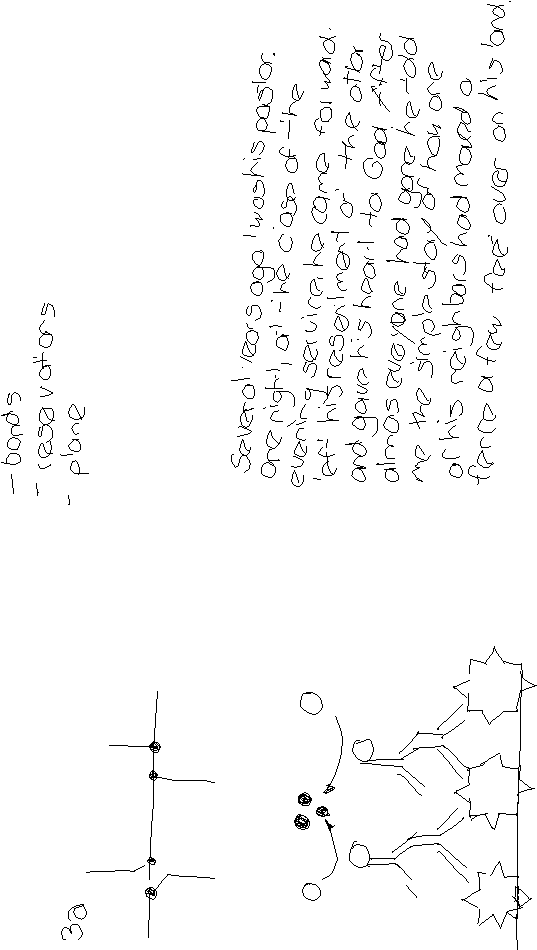 - bonds
- reservations
- plane
Several years ago I was his pastor.
One night at the close of the
evening service he came forward.
left his resentment at the altar
and gave his heart to God. After
almost everyone had gone he told
me the simple story of how one
of his neighbors had moved a
fence a few feet over on his land.
3a